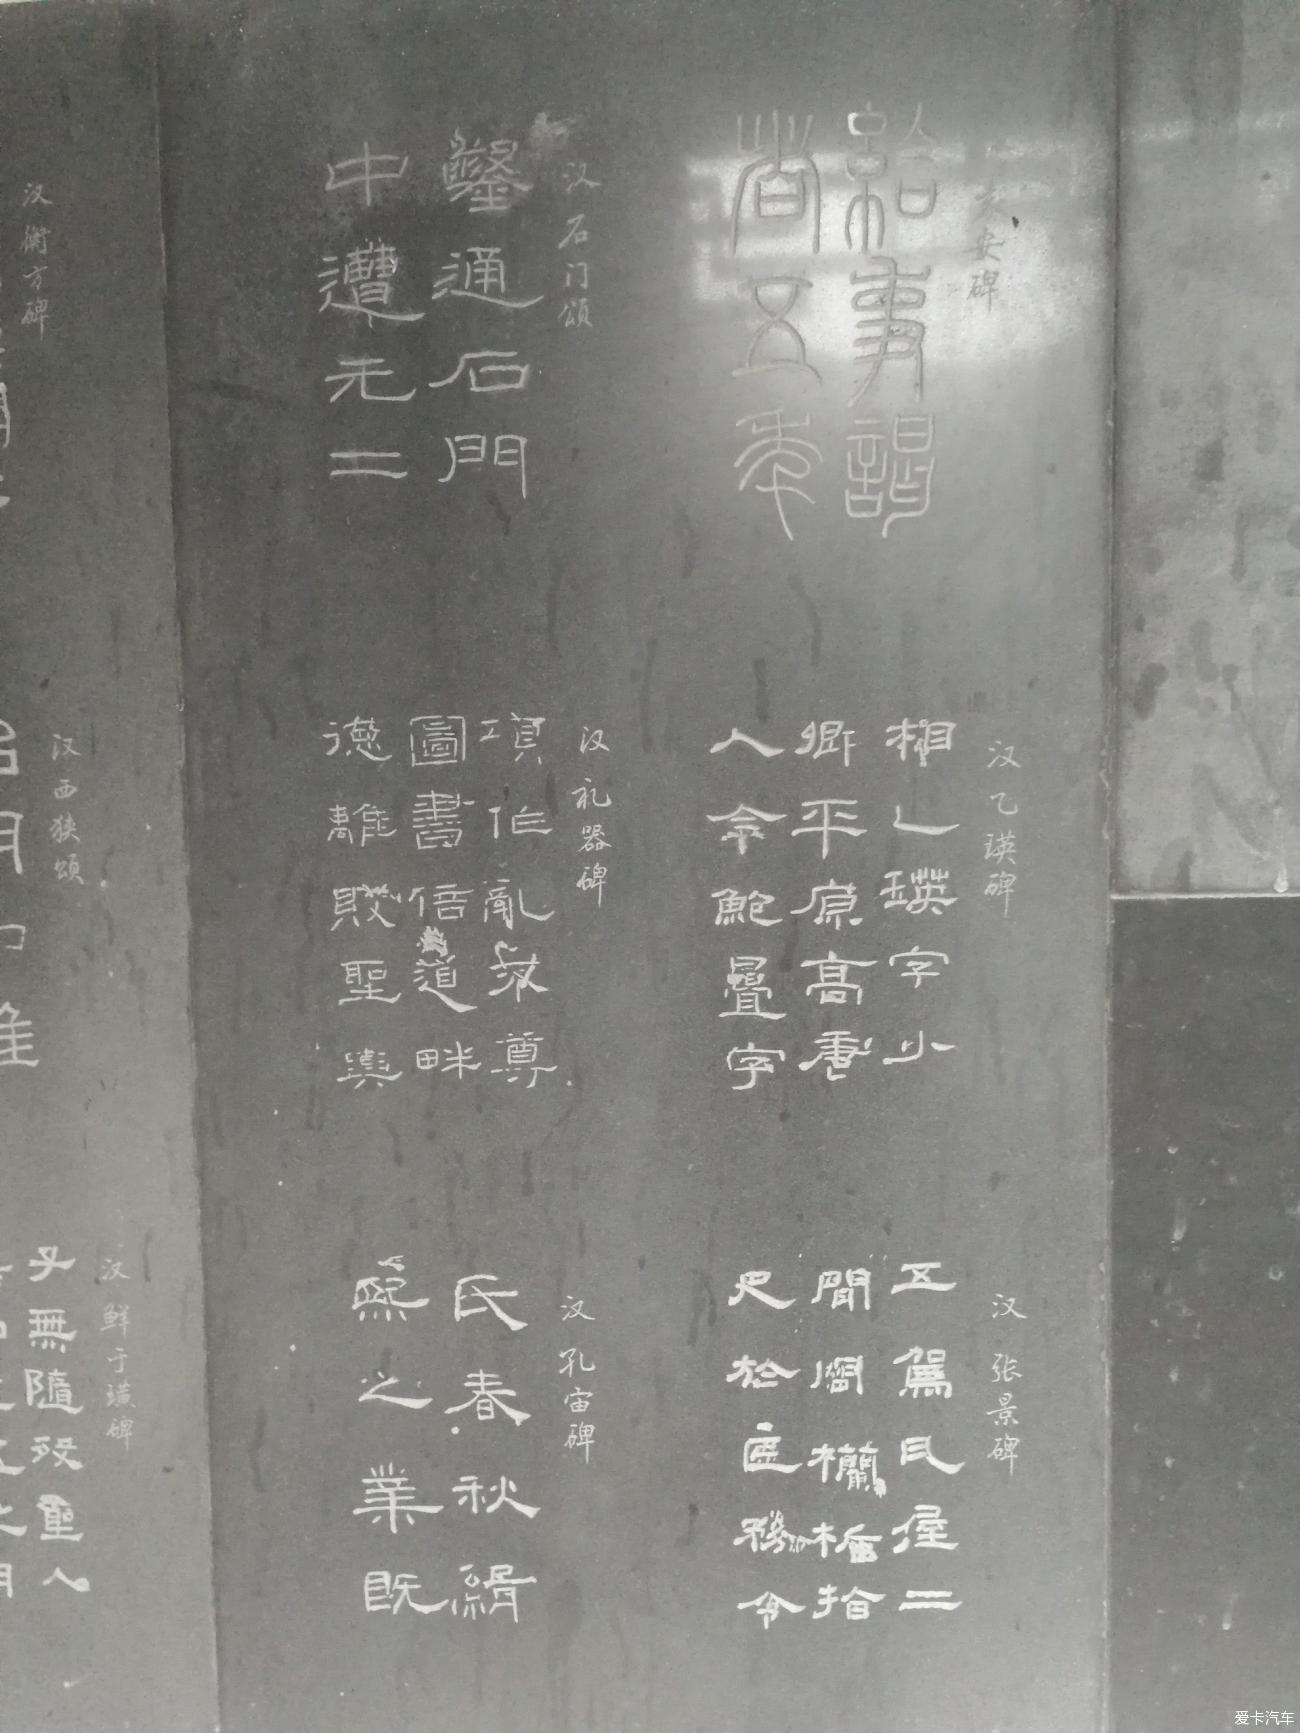 袁安碑
給事謁
者五年
汉石门颂
鑿通石門
中遭元二
汉乙瑛碑
相乙瑛字少
卿平原高唐
人令鮑疊字
汉礼器碑
項作亂不尊
圖書倍道畔
德離敗聖輿
汉张景碑
五駕瓦屋二
間周欄楯拾
尺於匠務令
汉孔宙碑
氏春秋緝
熙之業既
汉衡方碑
汉西狭颂
汉鲜于璜碑
無隨歿聖人
爱卡汽车